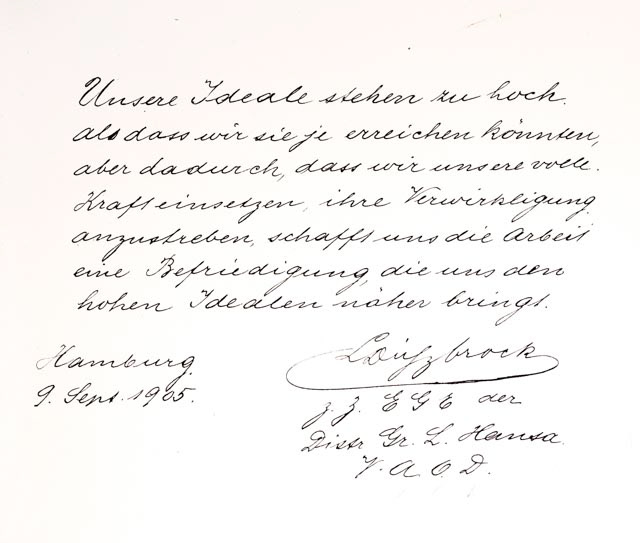 Unsere Ideale stehen zu hoch.
als dass wir sie je erreichen könnten,
aber dadurch, dass wir unsere volle.
Kraft einsetzen, ihre Verwirkligung
anzustreben, schafft uns die Arbeit
eine Befriedigung, die uns den
hohen Idealen näher bringt.
Hamburg.
9. Sept. 1905.
z. Z. E G E der
Distr Gr. L. Hansa.
V. A. O. D.